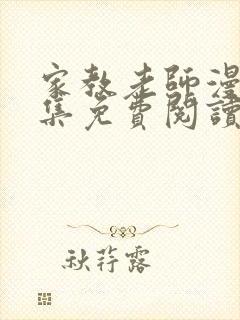 家教老師漫
集免費閱讀
秋荇露